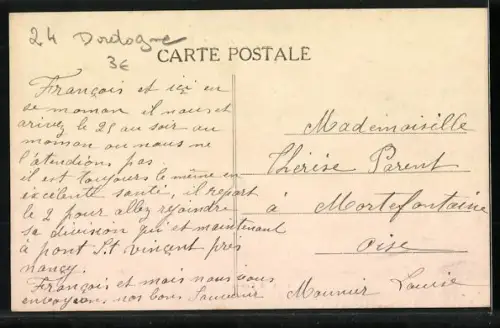 24 Dordogne
3€
CARTE POSTALE
François et ici en
se moman il nous et
arivez le 25 au soir au
moman ou nous ne
l'atendion pas
il est toujours le même en
excélente santé, il repart
le 2 pour allez rejoindre
sa division qui et maintenant
à pont St vincent près
nancy.
François et moi nous vous
envoyons nos bons Souvenir
Mademoiselle
Thérèse Parent
à Mortefontaine
Oise
Mounier Louise